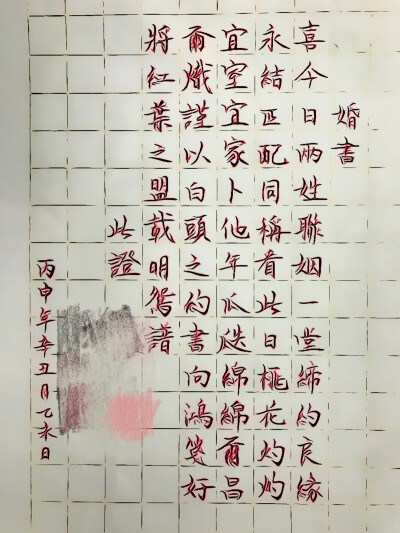 婚書
喜今日兩姓聯姻一堂締約良緣
永結匹配同稱看此日桃花灼灼
宜室宜家卜他年瓜瓞綿綿爾昌
爾熾謹以白頭之約書向鴻箋好
將紅葉之盟載明鴛譜
此證
丙申年辛丑月乙未日